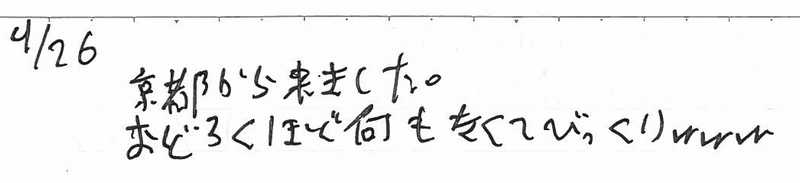 4/26
京都から来ました。
おどろくほど何もなくてびっくりwww